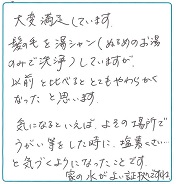 大変満足しています。
髪の毛を湯シャン(ぬるめのお湯
のみで洗浄)していますが、
以前と比べるととてもやわらかく
なったと思います。
気になるといえば、よその場所で
うがい等をした時に、塩素くさい…
と気づくようになったことです。
家の水がよい証拠ですね